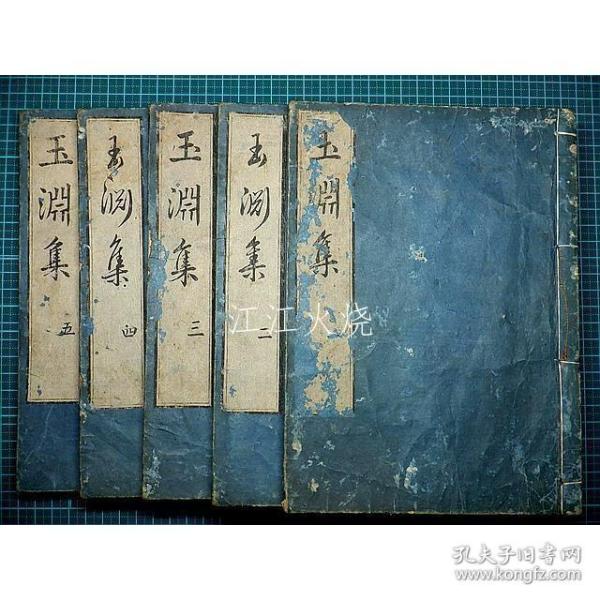 玉淵集
玉渕集
二
玉淵集
三
玉渕集
四
玉淵集
五
江江火烧
孔夫子旧书网
www.kongfz.com